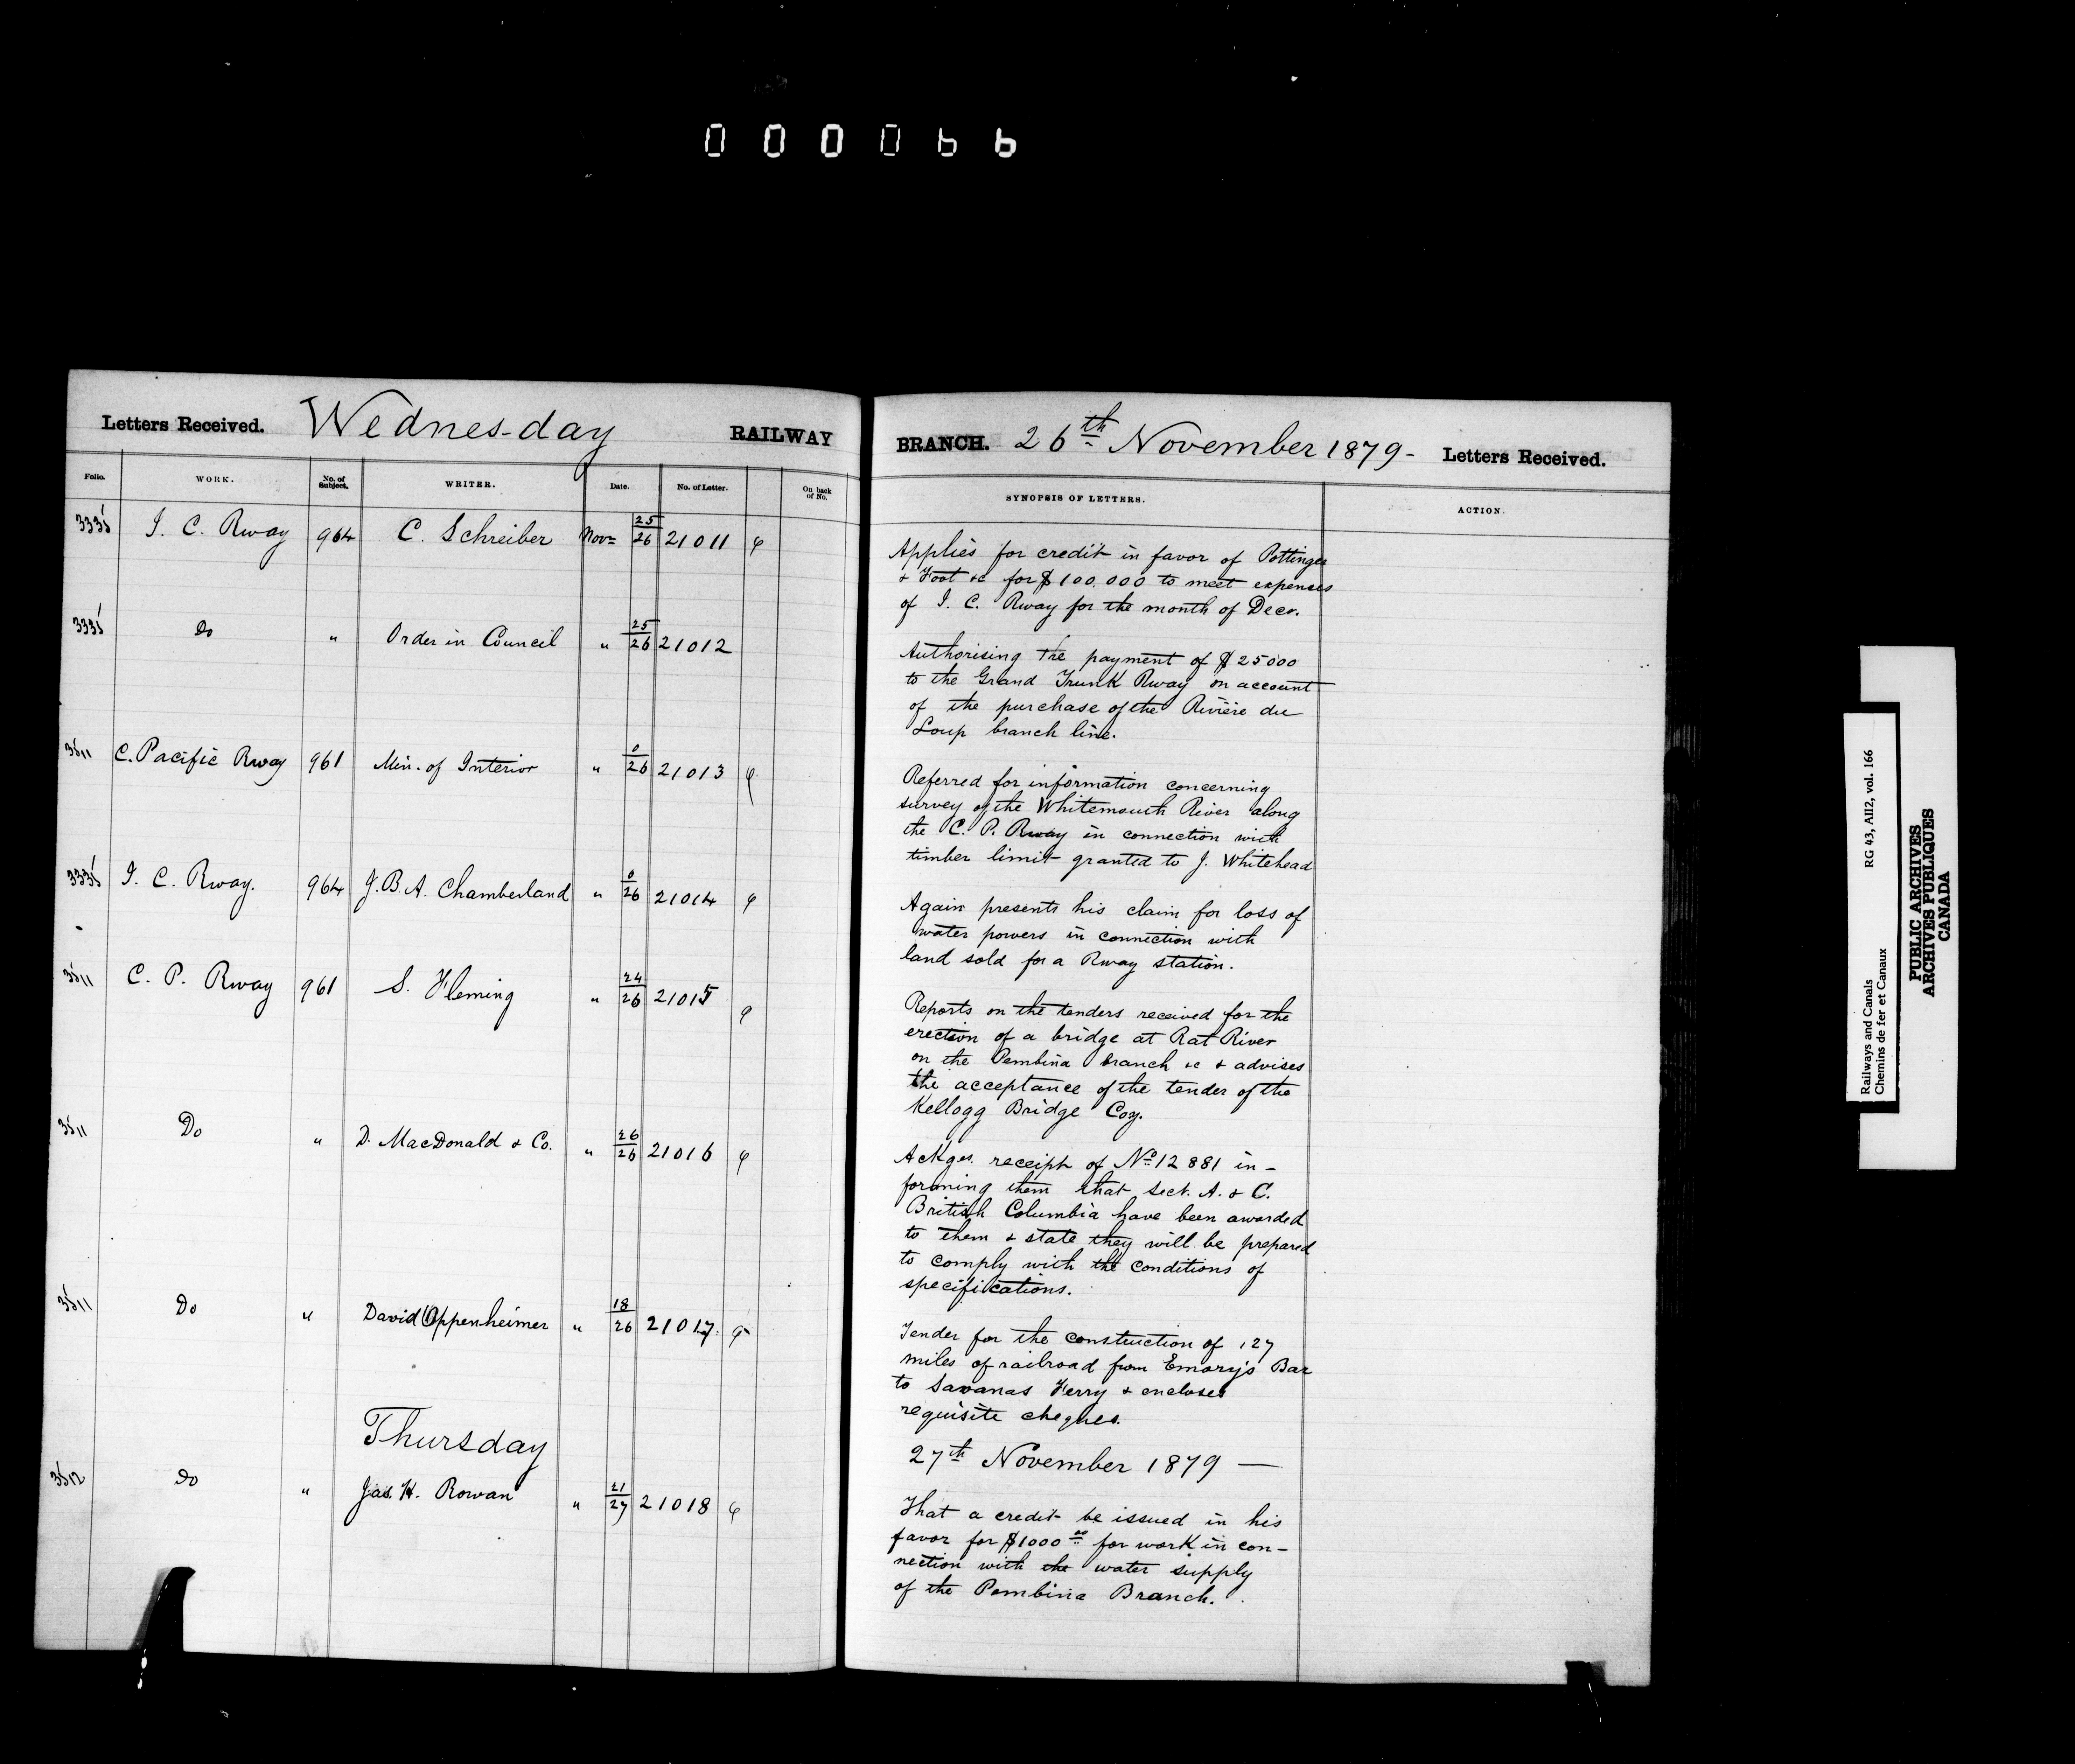 000066
Letters Received. Wednesday RAILWAY BRANCH. 26th November 1879 - Letters Received.
Folio. WORK. No. of Subject. WRITER. Date. No. of Letter. On back of No. SYNOPSIS OF LETTERS. ACTION.
I. C. Rway 964 C. Schreiber Nov 25/26 21011
Applies for credit in favor of Pottinger
& Foot &c for $100.000 to meet expenses
of I. C. Rway for the month of Decr.
Do " Order in Council " 25/26 21012
Authorising the payment of $25000
to the Grand Trunk Rway on account
of the purchase of the Rivière du
Loup branch line.
C. Pacific Rway 961 Min. of Interior " 0/26 21013
Referred for information concerning
survey of the Whitemouth River along
the C. P. Rway in connection with
timber limit granted to J. Whitehead
I. C. Rway. 964 J. B. A. Chamberland " 0/26 21014
Again presents his claim for loss of
water powers in connection with
land sold for a Rway station.
C. P. Rway 961 S. Fleming " 24/26 21015
Reports on the tenders received for the
erection of a bridge at Rat River
on the Pembina branch &c & advises
the acceptance of the tender of the
Kellogg Bridge Coy.
Do " D. MacDonald & Co. " 26/26 21016
Ackges. receipt of No. 12881 in-
forming them that Sect. A. & C.
British Columbia have been awarded
to them & state they will be prepared
to comply with the conditions of
specifications.
Do " David Oppenheimer " 18/26 21017
Tender for the construction of 127
miles of railroad from Emory's Bar
to Savanas Ferry & encloses
requisite cheques.
Thursday 27th November 1879 —
Do " Jas. H. Rowan " 21/27 21018
That a credit be issued in his
favor for $1000 00 for work in con-
nection with the water supply
of the Pembina Branch.
Railways and Canals RG 43, AII2, vol. 166
Chemins de fer et Canaux
PUBLIC ARCHIVES
ARCHIVES PUBLIQUES
CANADA